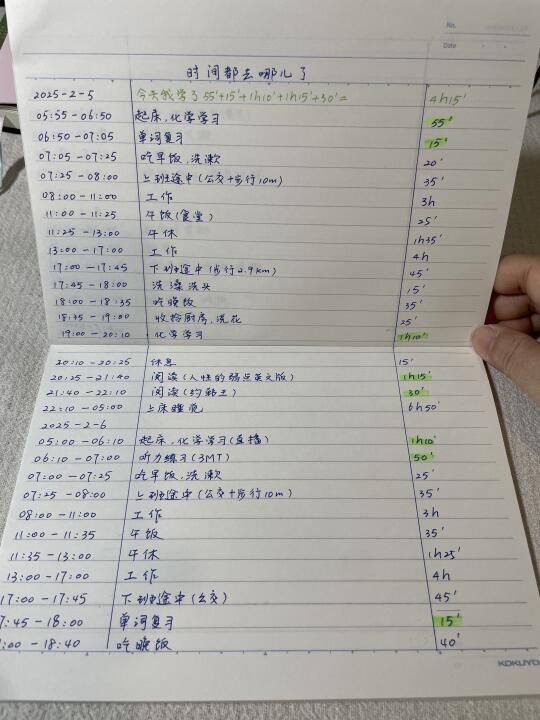 No.
Date
时间都去哪儿了
2025-2-5 今天我学了55'+15'+1h10'+1h15'+30'= 4h15'
05:55-06:50 起床,化学学习 55'
06:50-07:05 单词复习 15'
07:05-07:25 吃早饭、洗漱 20'
07:25-08:00 上班途中(公交+步行10m) 35'
08:00-11:00 工作 3h
11:00-11:25 午饭(食堂) 25'
11:25-13:00 午休 1h35'
13:00-17:00 工作 4h
17:00-17:45 下班途中(步行2.9km) 45'
17:45-18:00 洗澡洗头 15'
18:00-18:35 吃晚饭 35'
18:35-19:00 收拾厨房、浇花 25'
19:00-20:10 化学学习 1h10'
20:10-20:25 休息 15'
20:25-21:40 阅读(人性的弱点英文版) 1h15'
21:40-22:10 阅读(约翰王) 30'
22:10-05:00 上床睡觉 6h50'
2025-2-6
05:00-06:10 起床,化学学习(直播) 1h10'
06:10-07:00 听力练习(3MT) 50'
07:00-07:25 吃早饭、洗漱 25'
07:25-08:00 上班途中(公交+步行10m) 35'
08:00-11:00 工作 3h
11:00-11:35 午饭 35'
11:35-13:00 午休 1h25'
13:00-17:00 工作 4h
17:00-17:45 下班途中(公交) 45'
7:45-18:00 单词复习 15'
:00-18:40 吃晚饭 40'
KOKUYO